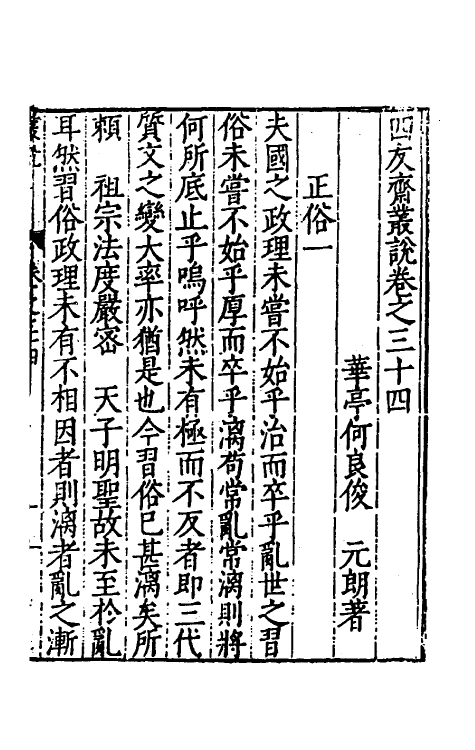 四友齋叢說卷之三十四
華亭何良俊 元朗著
正俗一
夫國之政理未嘗不始乎治而卒乎亂世之習
俗未嘗不始乎厚而卒乎漓苟常亂常漓則將
何所底止乎嗚呼然未有極而不反者即三代
質文之變大率亦猶是也今習俗已甚漓矣所
賴 祖宗法度嚴密 天子明聖故未至於亂
耳然習俗政理未有不相因者則漓者亂之漸